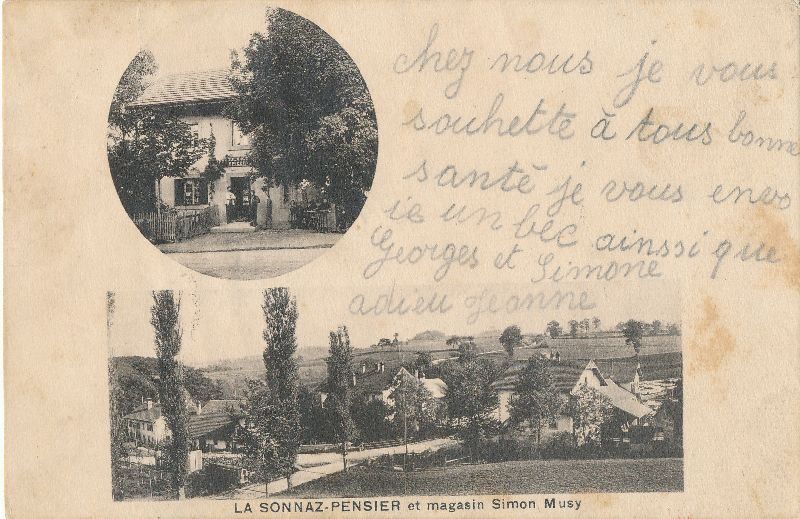 chez nous je vous
souhette à tous bonne
santé je vous envo
ie un bec ainsi que
Georges et Simone
adieu Jeanne
LA SONNAZ-PENSIER et magasin Simon Musy